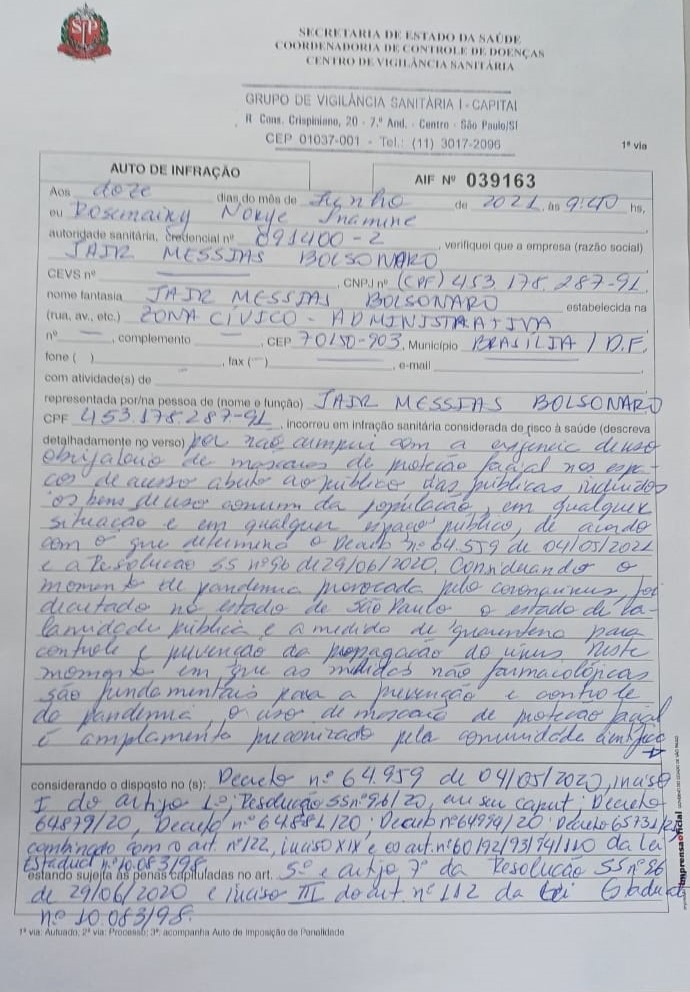 SECRETARIA DE ESTADO DA SAÚDE
COORDENADORIA DE CONTROLE DE DOENÇAS
CENTRO DE VIGILÂNCIA SANITÁRIA
GRUPO DE VIGILÂNCIA SANITÁRIA I - CAPITAL
R Cons. Crispiniano, 20 - 7.º And. - Centro - São Paulo/SP
CEP 01037-001 - Tel.: (11) 3017-2096
1ª via
AUTO DE INFRAÇÃO
AIF Nº 039163
Aos doze dias do mês de Junho de 2021, às 9:40 hs,
eu Rosemairy Norye Inamine
autoridade sanitária, credencial nº 091400-2, verifiquei que a empresa (razão social)
JAIR MESSIAS BOLSONARO
CEVS nº , CNPJ nº (CPF) 453.178.287-91,
nome fantasia JAIR MESSIAS BOLSONARO estabelecida na
(rua, av., etc.) ZONA CÍVICO - ADMINISTRATIVA
nº , complemento , CEP 70150-903, Município BRASILIA / D.F.
fone ( ) , fax ( ) , e-mail
com atividade(s) de
representada por/na pessoa de (nome e função) JAIR MESSIAS BOLSONARO
CPF 453.178.287-91, incorreu em infração sanitária considerada de risco à saúde (descreva
detalhadamente no verso) por não cumprir com a exigencia de uso
obrigatorio de mascaras de proteção facial nos espa-
ços de acesso aberto ao público, das públicas incluidos
os bens de uso comum da população, em qualquer
situação e em qualquer espaço público, de acordo
com o que determina o Decreto nº 64.559 de 04/05/2021
e a Resolucao SS nº 96 de 29/06/2020. Considerando o
momento de pandemia provocada pelo coronavirus, foi
decretado no estado de São Paulo o estado de ca-
lamidade pública e a medida de quarentena para
controle e prevenção da propagação do vírus. Neste
momento em que as medidas não farmacológicas
são fundamentais para a prevenção e controle
da pandemia, o uso de mascara de proteção facial
é amplamente preconizado pela comunidade científica
considerando o disposto no (s): Decreto nº 64.959 de 04/05/2020, inciso
I do artigo 1º; Resolução SS nº 96/20, em seu caput; Decreto
64879/20, Decreto nº 64881/20; Decreto nº 64994/20; Decreto 65731/21
combinado com o art. nº 122, inciso XIX e o art. nº 60/92/93/94/110 da lei
Estadual nº 10.083/98.
estando sujeita às penas capituladas no art. 5º e artigo 7º da Resolução SS nº 96
de 29/06/2020 e inciso III do art. nº 112 da Lei Estadual
nº 10 083/98.
1ª via: Autuado; 2ª via: Processo; 3ª: acompanha Auto de Imposição de Penalidade
imprensaoficial GOVERNO DO ESTADO DE SÃO PAULO